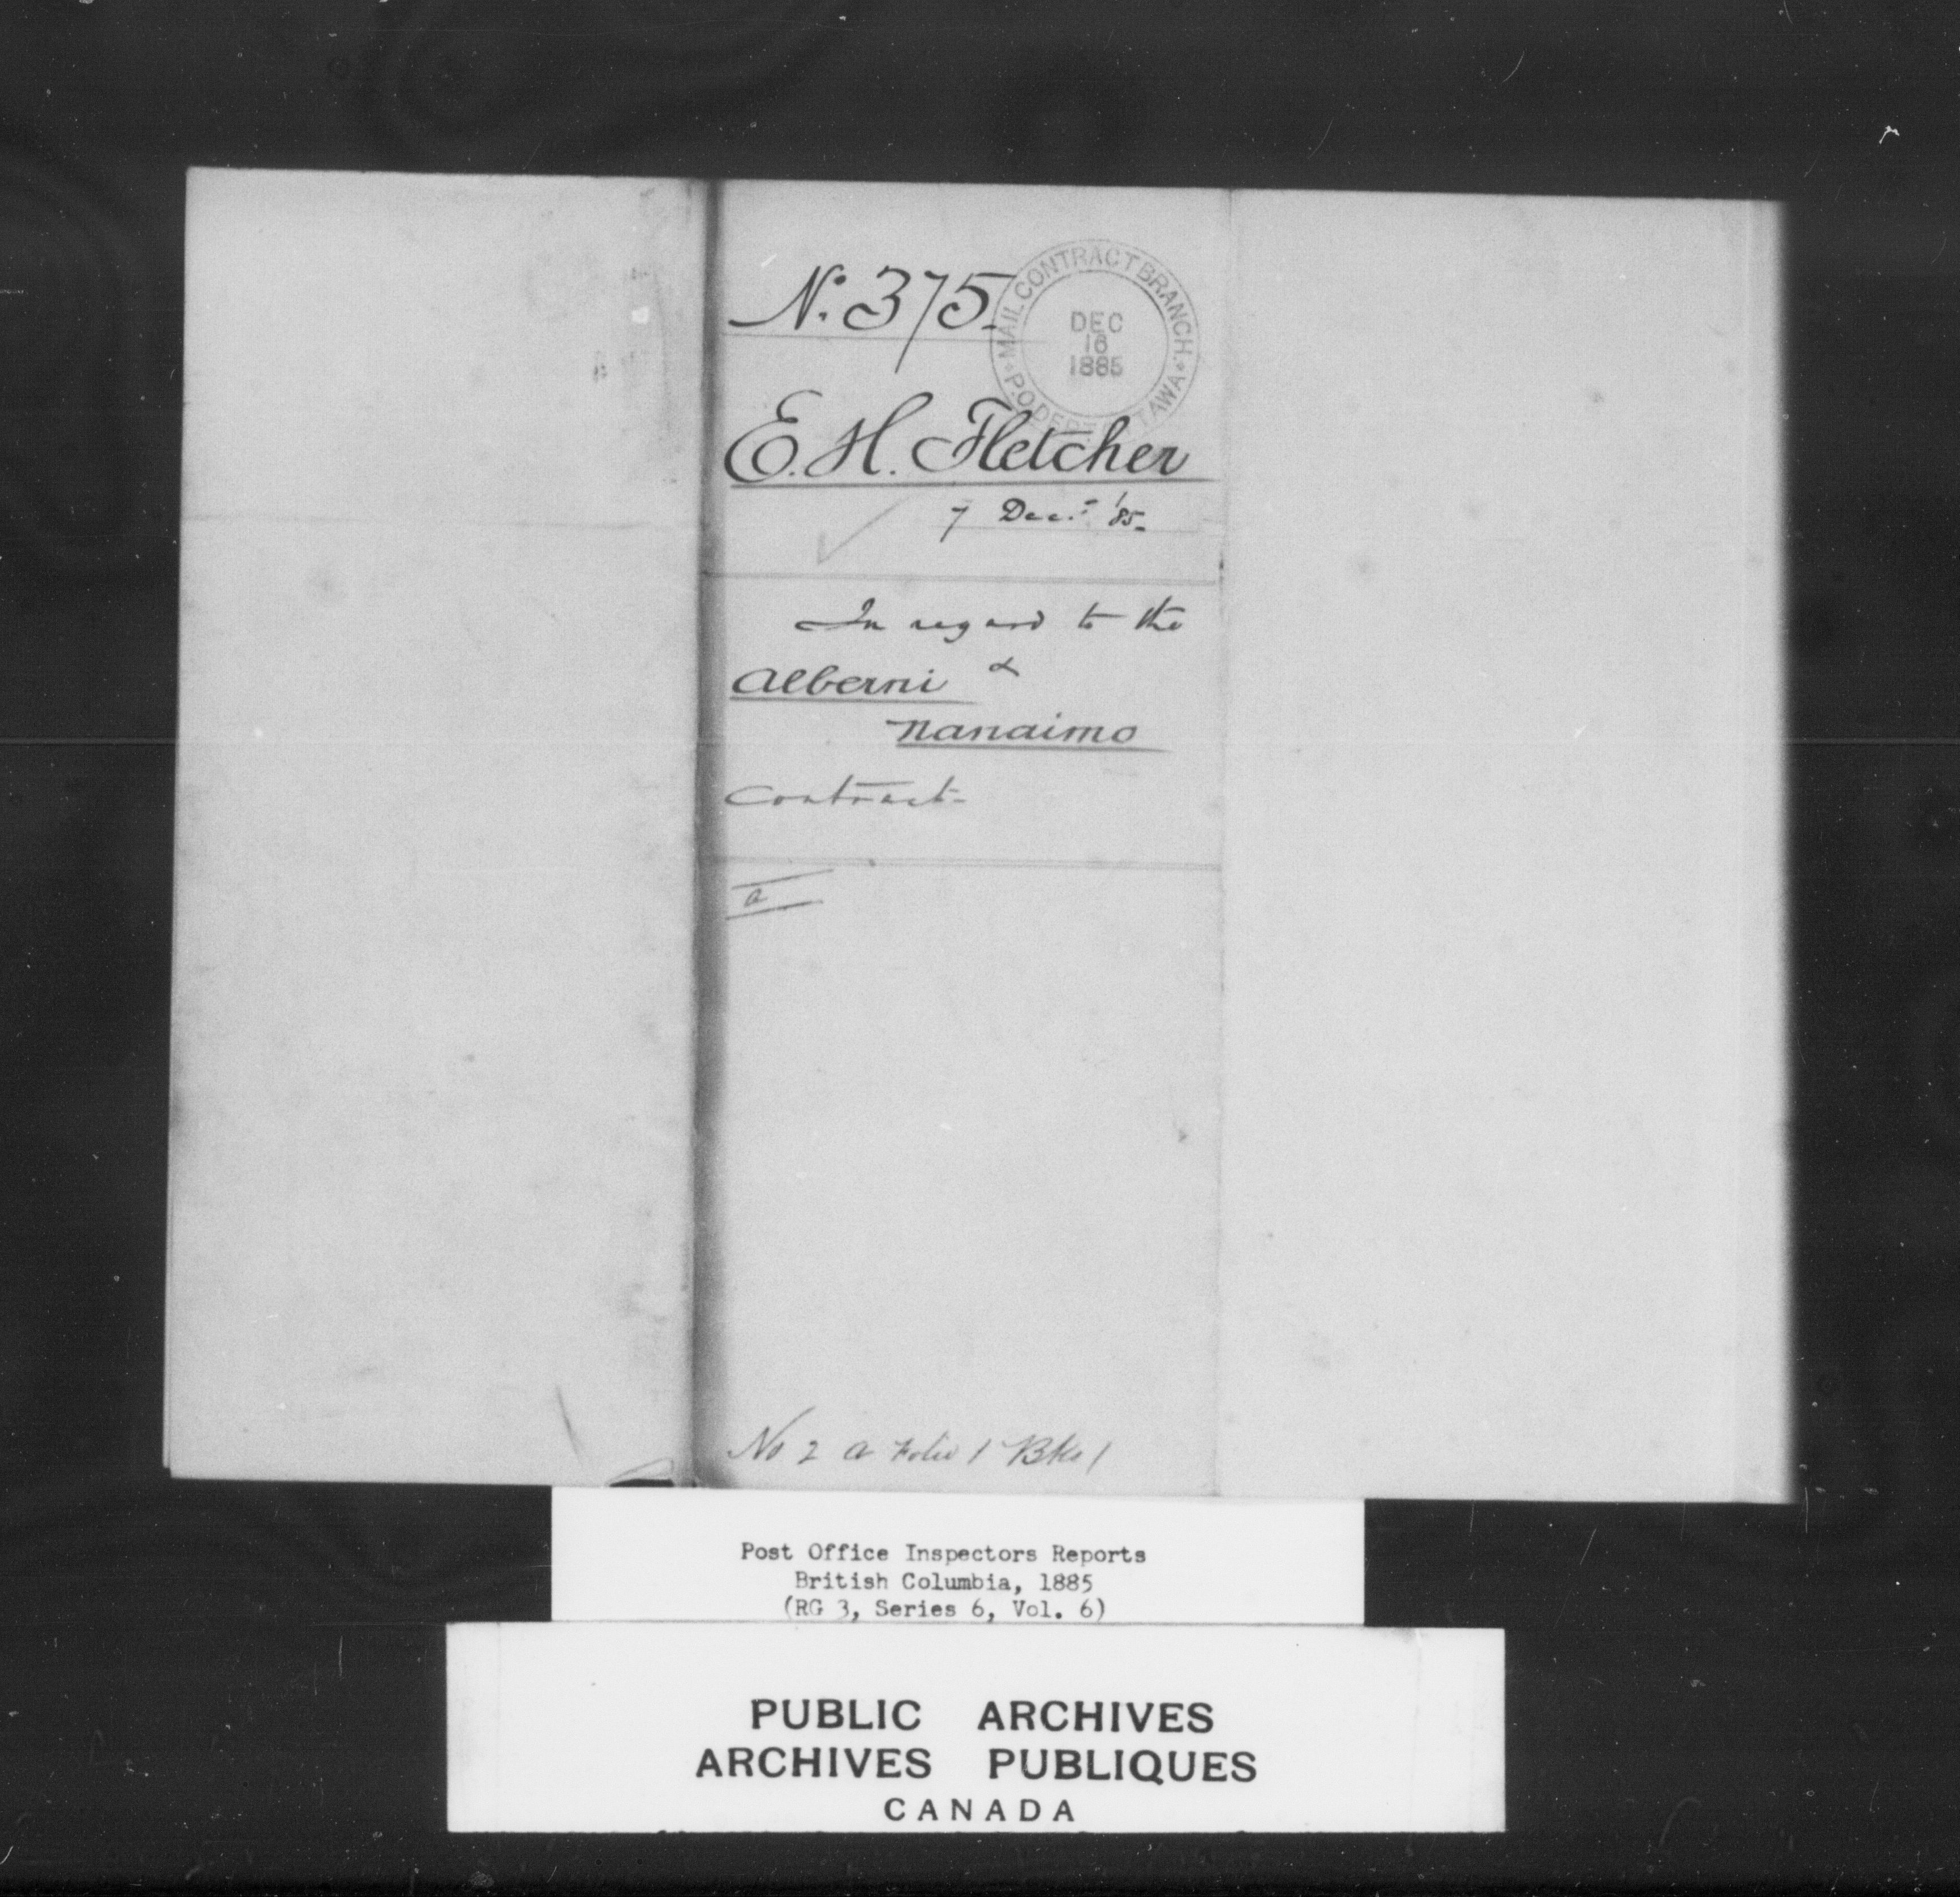 No. 375.
MAIL CONTRACT BRANCH
DEC
16
1885
E. H. Fletcher
7 Decr. '85.
In regard to the
Alberni &
Nanaimo
Contract-
a
No 2 a Folio 1 Bk 1
Post Office Inspectors Reports
British Columbia, 1885
(RG 3, Series 6, Vol. 6)
PUBLIC ARCHIVES
ARCHIVES PUBLIQUES
CANADA